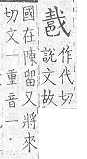 作代切
說文故
國在陳留又將來
切文一重音一